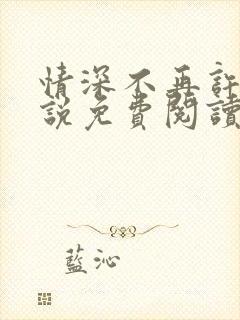 情深不再許
說免費閱讀
藍沁